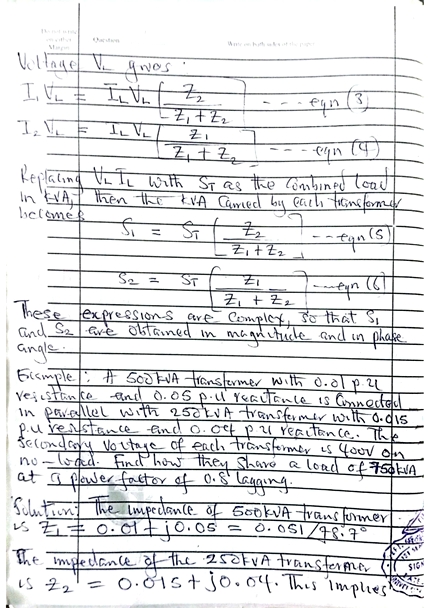 Question
Write on both sides of the paper
Voltage V_L gives:
I₁V_L = I_L V_L [Z₂ / (Z₁ + Z₂)] ---- eqn (3)
I₂V_L = I_L V_L [Z₁ / (Z₁ + Z₂)] ---- eqn (4)
Replacing V_L I_L with S_T as the combined load
in kVA, then the kVA carried by each transformer
becomes
S₁ = S_T [Z₂ / (Z₁ + Z₂)] ---- eqn (5)
S₂ = S_T [Z₁ / (Z₁ + Z₂)] ---- eqn (6)
These expressions are complex, so that S₁
and S₂ are obtained in magnitude and in phase
angle.
Example: A 500kVA transformer with 0.01 p.u
resistance and 0.05 p.u reactance is connected
in parallel with 250kVA transformer with 0.015
p.u resistance and 0.04 p.u reactance. The
secondary voltage of each transformer is 400V on
no-load. Find how they share a load of 750kVA
at a power factor of 0.8 lagging.
Solution: The impedance of 500kVA transformer
is Z₁ = 0.01 + j0.05 = 0.051 ∠78.7°
The impedance of the 250kVA transformer
is Z₂ = 0.015 + j0.04. This implies
SIGN